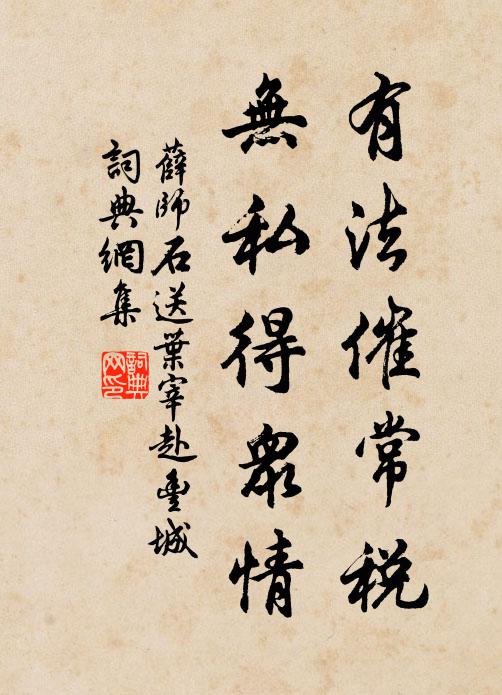 有法催常税
無私得眾情
薛師石送葉宰赴豐城
詞典網集
詞典网印